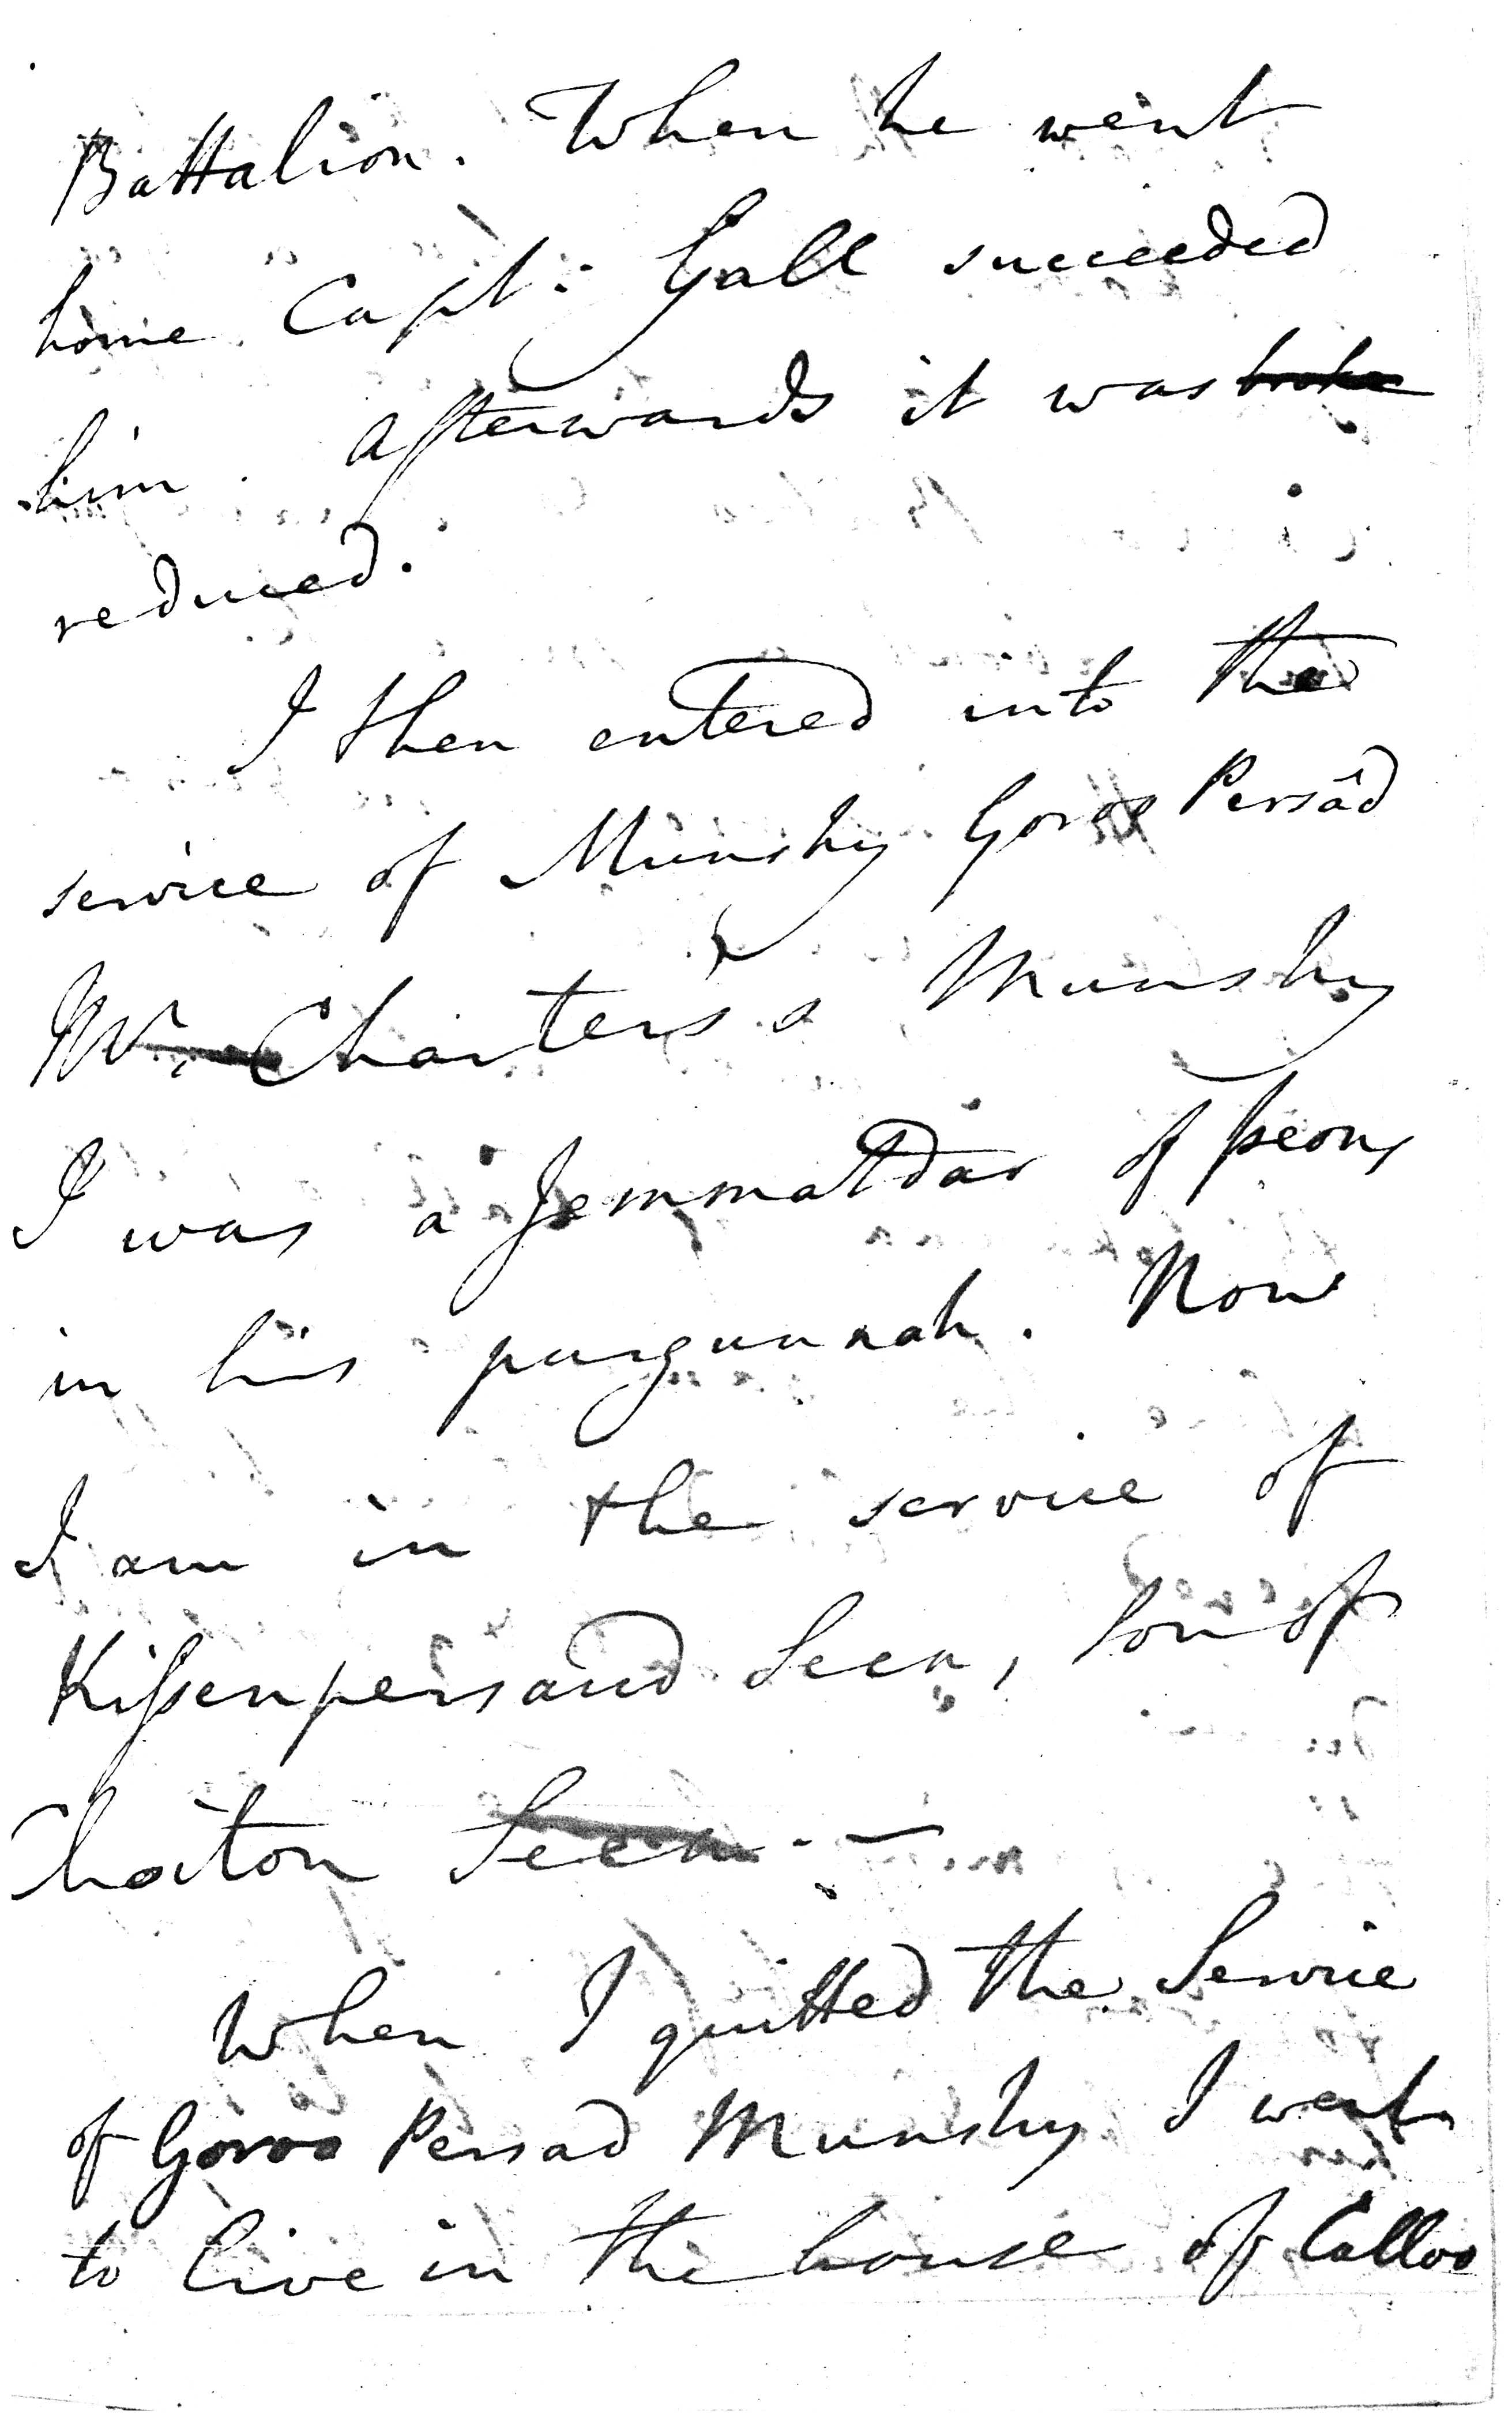 Battalion. When he went
home Capt: Gall succeeded
him. Afterwards it was broke
reduced.
I then entered into the
service of Munshy Goroo Persâd
Mr. Charters's Munshy
I was a Jemmatdar of peons
in his purgunnah. Now
I am in the service of
Kissenpersaud Seen, son of
Choiton Seen. —
When I quitted the Service
of Goroo Persad Munshy I went
to live in the house of Calloo